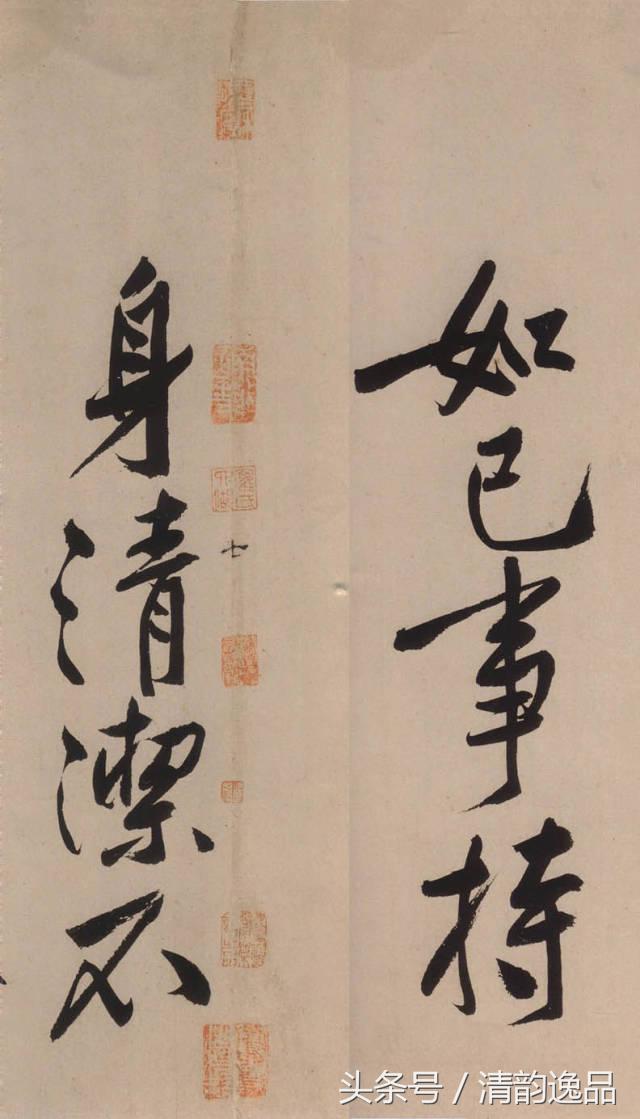 如己事持
身清潔不
七
头条号 / 清韵逸品